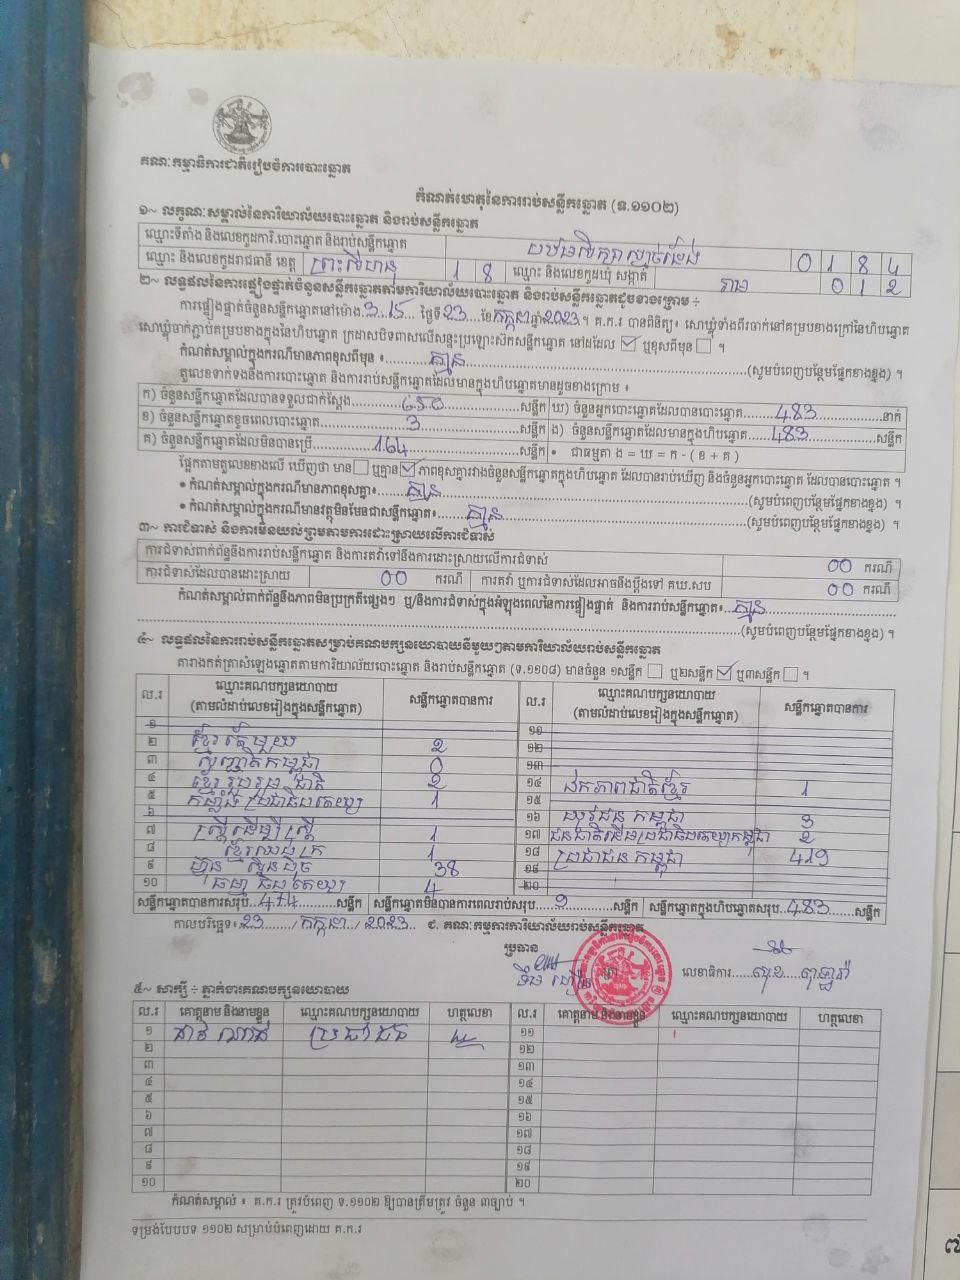 គណៈកម្មាធិការជាតិរៀបចំការបោះឆ្នោត
កំណត់ហេតុនៃការរាប់សន្លឹកឆ្នោត (ទ.១១០២)
១~ លក្ខណៈសម្គាល់នៃការិយាល័យបោះឆ្នោត និងរាប់សន្លឹកឆ្នោត
ឈ្មោះទីតាំង និងលេខកូដការិ.បោះឆ្នោត និងរាប់សន្លឹកឆ្នោត 0 1 8 4
ឈ្មោះ និងលេខកូដរាជធានី ខេត្ត ព្រះសីហនុ 1 8 ឈ្មោះ និងលេខកូដឃុំ សង្កាត់ រាម 0 1 2
២~ លទ្ធផលនៃការផ្ទៀងផ្ទាត់ចំនួនសន្លឹកឆ្នោតតាមការិយាល័យបោះឆ្នោត និងរាប់សន្លឹកឆ្នោតដូចខាងក្រោម ÷
ការផ្ទៀងផ្ទាត់ចំនួនសន្លឹកឆ្នោតនៅម៉ោង 3:15 ថ្ងៃទី 23 ខែ កក្កដា ឆ្នាំ 2023 ។ គ.ក.រ បានពិនិត្យ៖ សោឃ្លុំទាំងពីរចាក់នៅគម្របខាងក្រៅនៃហិបឆ្នោត
សោឃ្លុំចាក់ភ្ជាប់គម្របខាងក្នុងនៃហិបឆ្នោត ក្រដាសបិទពាសលើសន្ទះប្រឡោះស៊កសន្លឹកឆ្នោត នៅដដែល ☑ ឬខុសពីមុន ☐ ។
កំណត់សម្គាល់ក្នុងករណីមានភាពខុសពីមុន ៖ គ្មាន (សូមបំពេញបន្ថែមផ្នែកខាងខ្នង) ។
តួលេខទាក់ទងនឹងការបោះឆ្នោត និងការរាប់សន្លឹកឆ្នោតដែលមានក្នុងហិបឆ្នោតមានដូចខាងក្រោម ៖
ក) ចំនួនសន្លឹកឆ្នោតដែលបានទទួលជាក់ស្តែង 650 សន្លឹក ឃ) ចំនួនអ្នកបោះឆ្នោតដែលបានបោះឆ្នោត 483 នាក់
ខ) ចំនួនសន្លឹកឆ្នោតខូចពេលបោះឆ្នោត 3 សន្លឹក ង) ចំនួនសន្លឹកឆ្នោតដែលមានក្នុងហិបឆ្នោត 483 សន្លឹក
គ) ចំនួនសន្លឹកឆ្នោតដែលមិនបានប្រើ 164 សន្លឹក • ជាធម្មតា ង = ឃ = ក - ( ខ + គ )
ផ្អែកតាមតួលេខខាងលើ ឃើញថា មាន ☐ ឬគ្មាន ☑ ភាពខុសគ្នារវាងចំនួនសន្លឹកឆ្នោតក្នុងហិបឆ្នោត ដែលបានរាប់ឃើញ និងចំនួនអ្នកបោះឆ្នោត ដែលបានបោះឆ្នោត ។
• កំណត់សម្គាល់ក្នុងករណីមានភាពខុសគ្នា៖ គ្មាន (សូមបំពេញបន្ថែមផ្នែកខាងខ្នង) ។
• កំណត់សម្គាល់ក្នុងករណីមានវត្ថុមិនមែនជាសន្លឹកឆ្នោត៖ គ្មាន (សូមបំពេញបន្ថែមផ្នែកខាងខ្នង) ។
៣~ ការជំទាស់ និងការមិនយល់ព្រមតាមការដោះស្រាយលើការជំទាស់
ការជំទាស់ពាក់ព័ន្ធនឹងការរាប់សន្លឹកឆ្នោត និងការតវ៉ាទៅនឹងការដោះស្រាយលើការជំទាស់ 00 ករណី
ការជំទាស់ដែលបានដោះស្រាយ 00 ករណី ការតវ៉ា ឬការជំទាស់ដែលអាចនឹងប្តឹងទៅ គឃ.សប 00 ករណី
កំណត់សម្គាល់ពាក់ព័ន្ធនឹងភាពមិនប្រក្រតីផ្សេងៗ ឬ/និងការជំទាស់ក្នុងអំឡុងពេលនៃការផ្ទៀងផ្ទាត់ និងការរាប់សន្លឹកឆ្នោត៖ គ្មាន
(សូមបំពេញបន្ថែមផ្នែកខាងខ្នង) ។
៤~ លទ្ធផលនៃការរាប់សន្លឹកឆ្នោតសម្រាប់គណបក្សនយោបាយនីមួយៗតាមការិយាល័យរាប់សន្លឹកឆ្នោត
តារាងកត់ត្រាសំឡេងឆ្នោតតាមការិយាល័យបោះឆ្នោត និងរាប់សន្លឹកឆ្នោត (ទ.១១០៨) មានចំនួន ១សន្លឹក ☐ ឬ២សន្លឹក ☑ ឬ៣សន្លឹក ☐ ។
ល.រ ឈ្មោះគណបក្សនយោបាយ (តាមលំដាប់លេខរៀងក្នុងសន្លឹកឆ្នោត) សន្លឹកឆ្នោតបានការ ល.រ ឈ្មោះគណបក្សនយោបាយ (តាមលំដាប់លេខរៀងក្នុងសន្លឹកឆ្នោត) សន្លឹកឆ្នោតបានការ
១ ១១
២ ខ្មែរតែមួយ 2 ១២
៣ សញ្ជាតិកម្ពុជា 0 ១៣
៤ ខ្មែររួបរួមជាតិ 2 ១៤ ឯកភាពជាតិខ្មែរ 1
៥ កម្លាំងប្រជាធិបតេយ្យ 1 ១៥
៦ ១៦ យុវជនកម្ពុជា 3
៧ ស្ត្រីដើម្បីស្ត្រី 1 ១៧ ជនជាតិដើមប្រជាធិបតេយ្យកម្ពុជា 2
៨ ខ្មែរឈប់ក្រ 1 ១៨ ប្រជាជនកម្ពុជា 419
៩ ហ៊្វុនស៊ិនប៉ិច 38 ១៩
១០ ធម្មាធិបតេយ្យ 4 ២០
សន្លឹកឆ្នោតបានការសរុប 474 សន្លឹក សន្លឹកឆ្នោតមិនបានការពេលរាប់សរុប 9 សន្លឹក សន្លឹកឆ្នោតក្នុងហិបឆ្នោតសរុប 483 សន្លឹក
កាលបរិច្ឆេទ៖ 23 / កក្កដា / 2023 ជ. គណៈកម្មការការិយាល័យរាប់សន្លឹកឆ្នោត
ប្រធាន
លេខាធិការ
៥~ សាក្សី ÷ ភ្នាក់ងារគណបក្សនយោបាយ
ល.រ គោត្តនាម និងនាមខ្លួន ឈ្មោះគណបក្សនយោបាយ ហត្ថលេខា ល.រ គោត្តនាម និងនាមខ្លួន ឈ្មោះគណបក្សនយោបាយ ហត្ថលេខា
១ ប្រជាជន ១១
២ ១២
៣ ១៣
៤ ១៤
៥ ១៥
៦ ១៦
៧ ១៧
៨ ១៨
៩ ១៩
១០ ២០
កំណត់សម្គាល់ ៖ គ.ក.រ ត្រូវបំពេញ ទ.១១០២ ឱ្យបានត្រឹមត្រូវ ចំនួន ៣ច្បាប់ ។
ទម្រង់បែបបទ ១១០២ សម្រាប់បំពេញដោយ គ.ក.រ